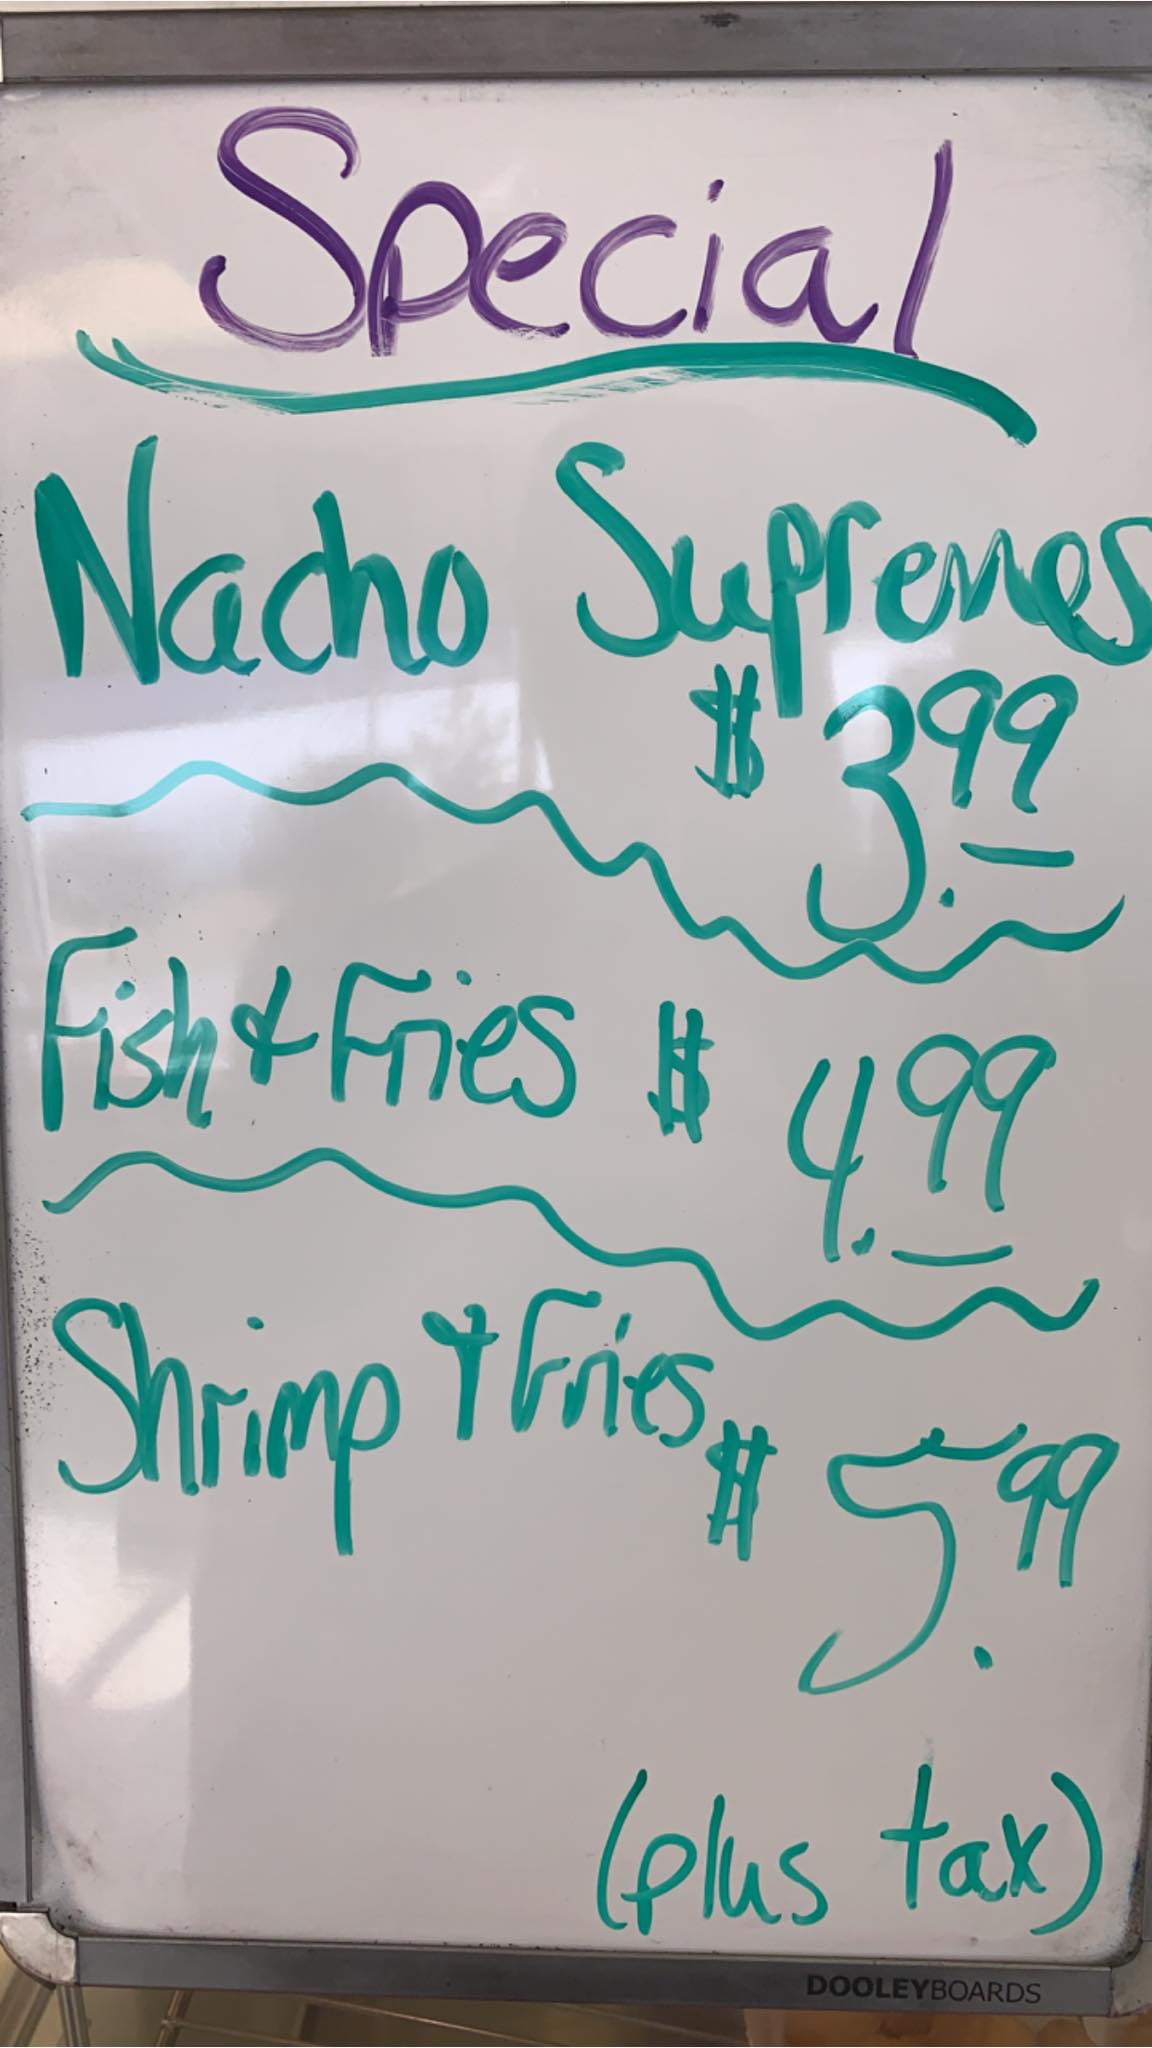 Special
Nacho Supremes
$ 3.99
Fish & Fries $ 4.99
Shrimp & Fries $ 5.99
(plus tax)
DOOLEYBOARDS